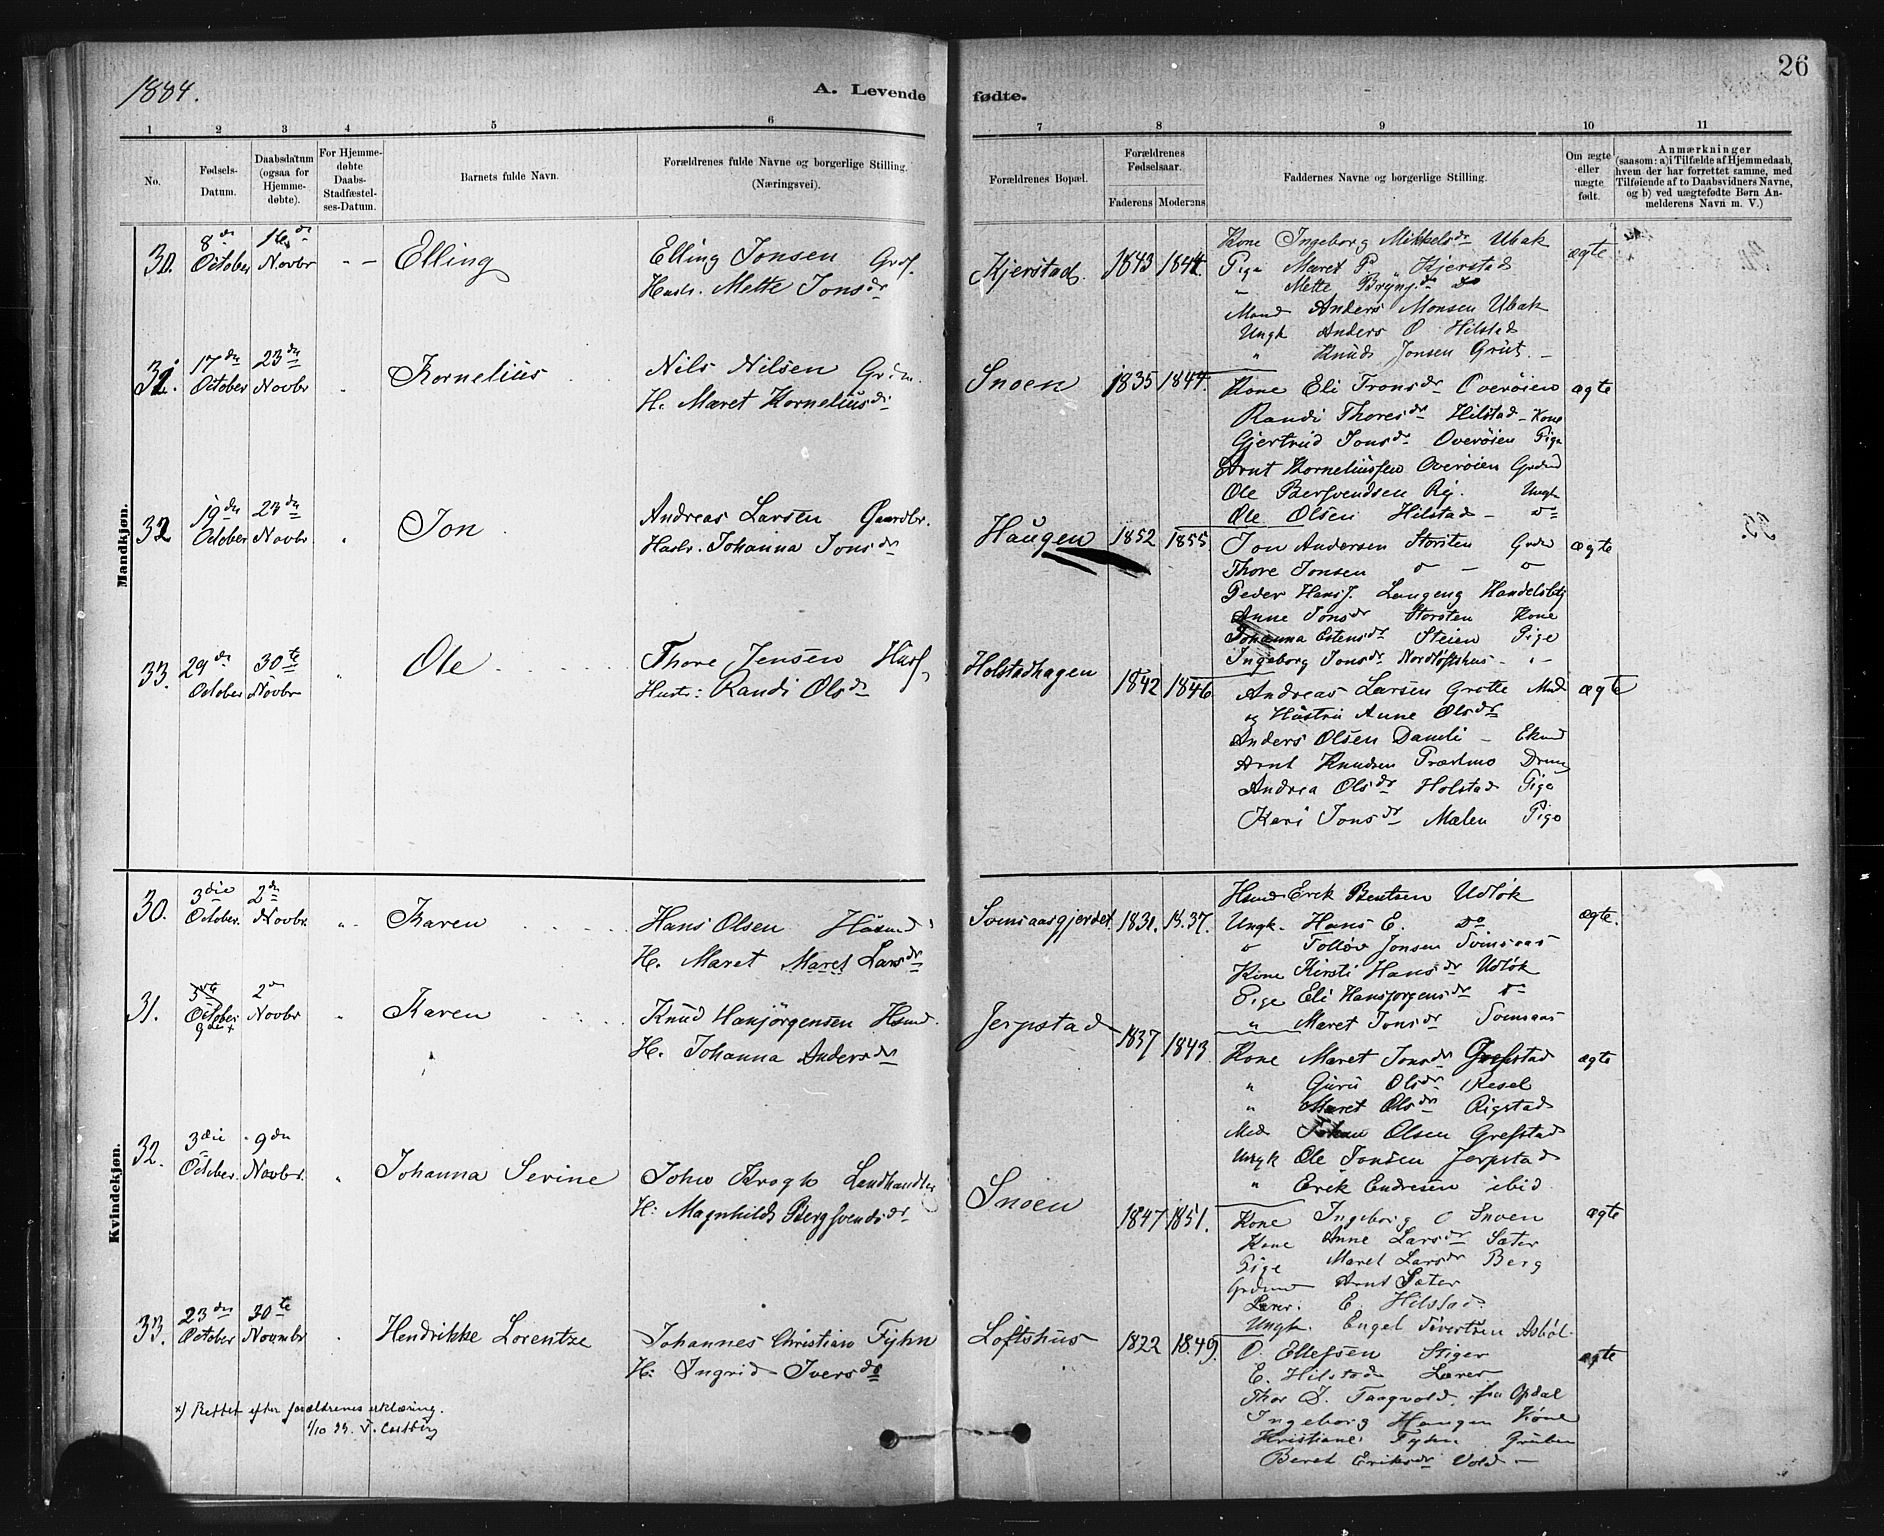 1884.
A. Levende fødte.
26
1 2 3 4 5 6 7 8 9 10 11
No.
Fødsels-Datum.
Daabsdatum (ogsaa for Hjemme-døbte).
For Hjemme-døbte Daabs-Stadfæstel-ses-Datum.
Barnets fulde Navn.
Forældrenes fulde Navne og borgerlige Stilling. (Næringsvei).
Forældrenes Bopæl.
Forældrenes Fødselsaar.
Faderens Moderens
Faddernes Navne og borgerlige Stilling.
Om ægte eller uægte født.
Anmærkninger
(saasom: a) i Tilfælde af Hjemmedaab,
hvem der har forrettet samme, med
Tilføiende af to Daabsvidners Navne,
og b) ved uægtefødte Børn An-
melderens Navn m. V.)
Mandkjøn.
30. 8de October Novbr Elling
Elling Jonsen
Hustr. Mette Jonsdr
Kjerstad. 1843 1844 ægte
Kone Ingeborg Mikkelsdr Ubak
Pige Maret P. " Kjerstad
" Mette Brynj.dr do
Mand Anders Monsen Ubak
Ungk Anders O Hilstad
" Knud Jonsen Grut. -
31. 17de October 23de Novbr " Kornelius
Nils Nilsen
H. Maret Korneliusdr
Snoen 1835 1844. ægte
Kone Eli Tronsdr Overøien
Randi Thoresdr Hilstad - Kone
Gjertrud Jonsdr Overøien Pige
Arnt Korneliussen Overøien Grdmd
Ole Bersvendsen Rij. Ungk
Ole Olsen Hilstad - do
32 19de October 23de Novbr " Jon
Andreas Larsen Gaardbr.
Hustr. Johanna Jonsdr
Haugen 1852 1855 ægte
Jon Andersen Storsten
Thore Jonsen o - o
Peder Hansf. Langeng
Anne Jonsdr Storsten Kone
Johanna Estensdr Steien Pige
Ingeborg Jonsdr Nordløftshus - " -
33. 29de October 30te Novbr " Ole
Thore Jensen Husf
Hustr: Randi Olsdr
Holstadhagen 1842 1846 ægte
Andreas Larsen Grotte
og Hustru Anne Olsdr
Anders Olsen Damli -
Arnt Knudsen Præstmo Dreng
Andrea Olsdr Holstad Pige
Kari Jonsdr Mælen Pige
Kvindekjøn.
30. 3die October. 2de Novbr. " Karen
Hans Olsen Husmd
H. Maret Maret Larsdr
Svinsaasgjerdet 1831. 1837. ægte.
Husmd Erik Bentsen Udløk
Ungk. Hans E. Do
o Tollov Jonsen Svinsaas
Kone Kirsti Hansdr Udløk
Pige Eli Hansjorgensdr do
" Maret Jonsdr Svinsaas
31. October 9de x 2de Novbr " Karen
Knud Hansjørgensen Husmd.
H. Johanna Andersdr
Jerpstad 1837 1843 ægte
Kone Maret Jonsdr Grefstad
" Guru Olsdr Resel
" Maret Olsdr Rigstad
Md Johan Olsen Grefstad
Ungk Ole Jonsen Jerpstad
" Erik Endresen ibid
32. 3die October. 9de Novbr. " Johanna Serine
John Krogh Landhandler
H: Magnhild Bergsvendsdr
Snoen 1847 1851. ægte
Kone Ingeborg O Snoen
Kone Anne Larsdr Sæter
Pige Maret Larsdr Berg
Grdmd Arnt Sæter
Lærer. E. Hilstad.
Ungk. Engel Sivertsen Asbøl
33. 23de October 30te Novmbr " Hendrikke Lorentze
Johannes Christian Fyhn
H: Ingrid Iversdr
Loftshus 1822 1849. ægte
O. Ellefsen Stiger
E. Hilstad Lærer
Thor D. Taagvold, fra Opdal
Ingeborg Haugen Kone
Kristiane Fyhn
Beret Eriksdr Vold -
x) Rettet efter forældrenes erklæring.